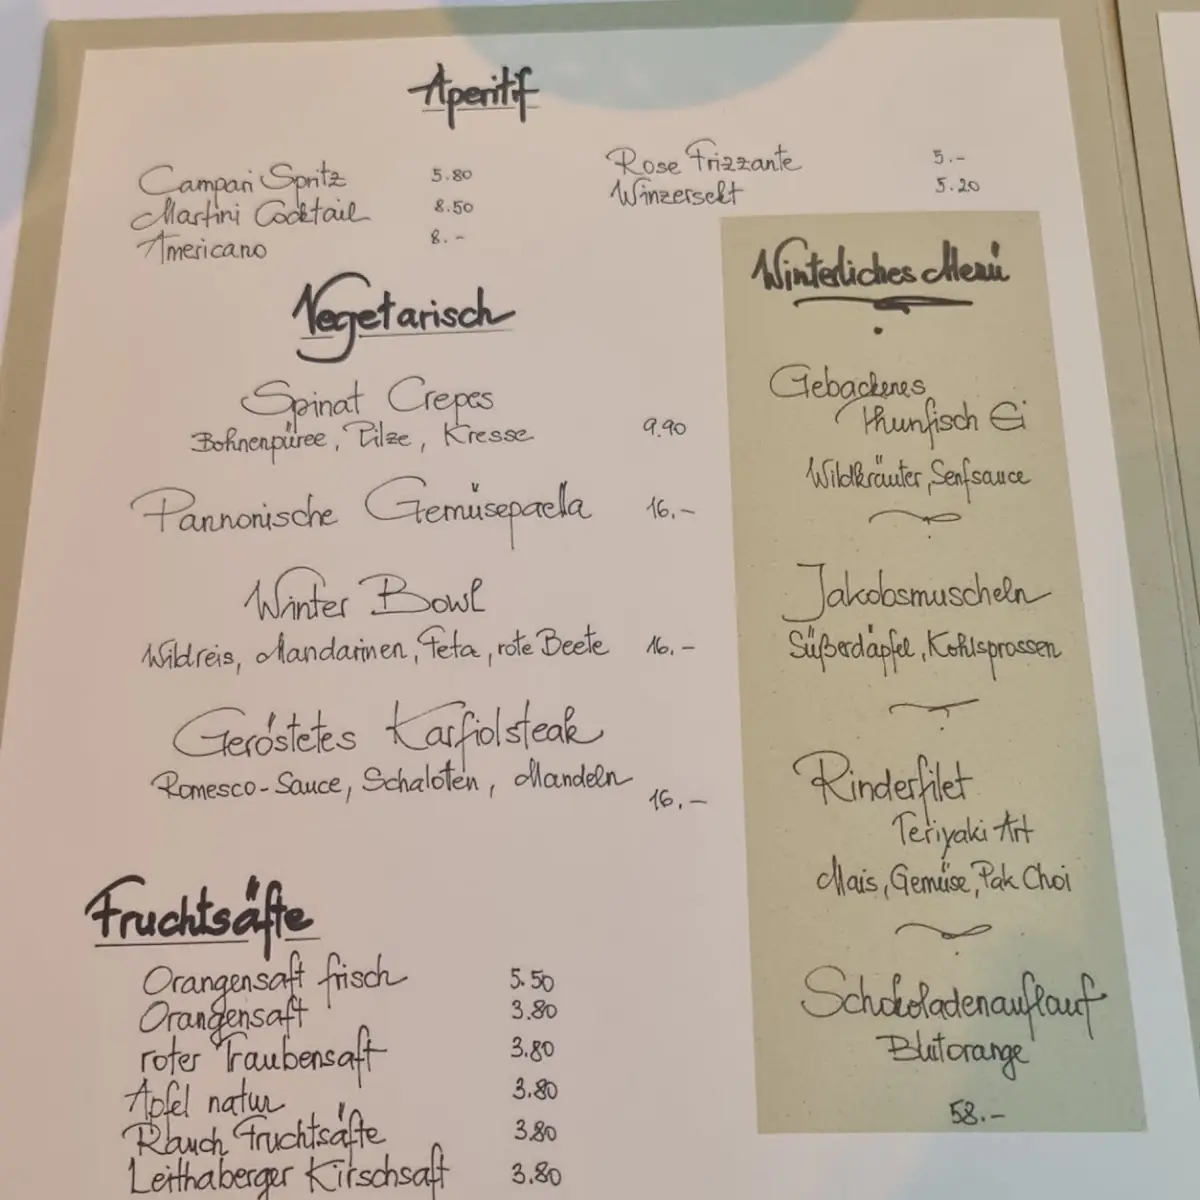 Aperitif
Campari Spritz 5.80
Martini Cocktail 8.50
Americano 8.-
Rose Frizzante 5.-
Winzersekt 5.20
Vegetarisch
Spinat Crepes
Bohnenpüree, Pilze, Kresse 9.90
Pannonische Gemüsepaella 16.-
Winter Bowl
Wildreis, Mandarinen, Feta, rote Beete 16.-
Geröstetes Karfiolsteak
Romesco-Sauce, Schaloten, Mandeln
16.-
Fruchtsäfte
Orangensaft frisch 5.50
Orangensaft 3.80
roter Traubensaft 3.80
Apfel natur 3.80
Rauch Fruchtsäfte 3.80
Leithaberger Kirschsaft 3.80
Winterliches Menü
Gebackenes
Thunfisch Ei
Wildkräuter, Senfsauce
Jakobsmuscheln
Süßerdäpfel, Kohlsprossen
Rinderfilet
Teriyaki Art
Mais, Gemüse, Pak Choi
Schokoladenauflauf
Blutorange
58.-